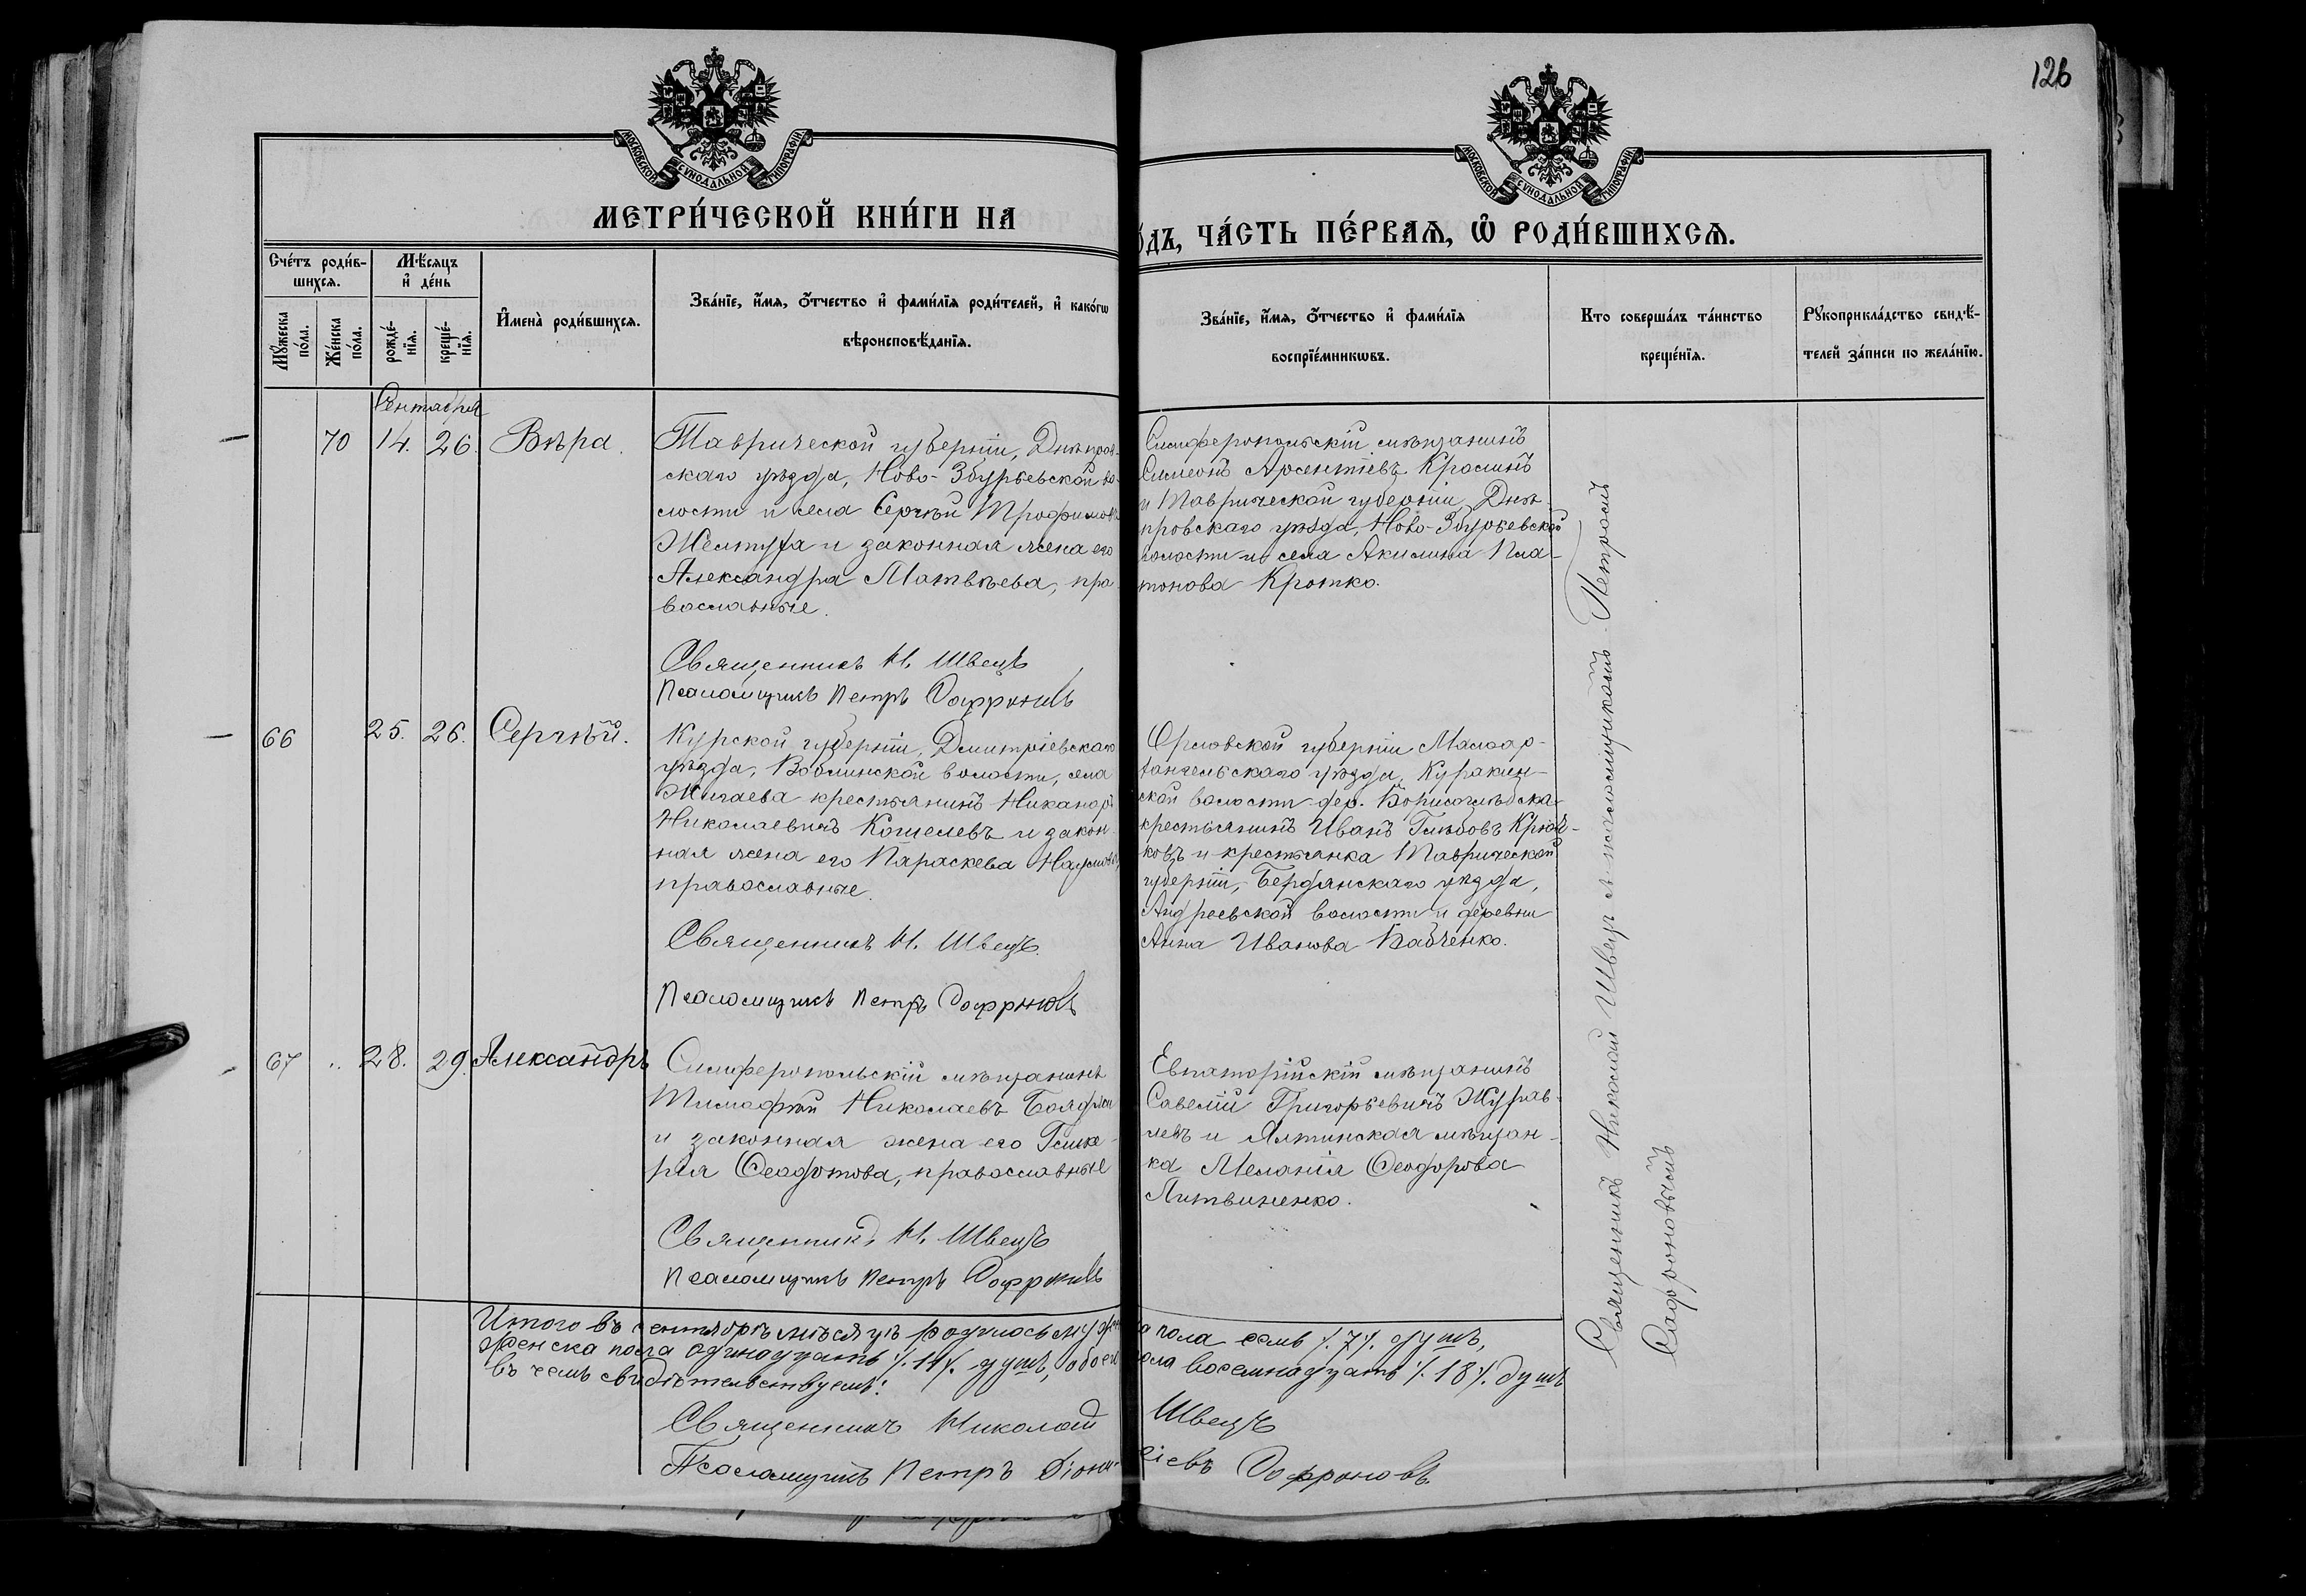 126
МОСКОВСКОЙ СѴНОДАЛЬНОЙ ТИПОГРАФІИ
МОСКОВСКОЙ СѴНОДАЛЬНОЙ ТИПОГРАФІИ
МЕТРИ́ЧЕСКОЙ КНИ́ГИ НА
О́ДЪ, ЧА́СТЬ ПЕ́РВАѦ, Ѡ҆ РОДИ́ВШИХСѦ.
Сче́тъ роди́в-
шихсѧ.
Мѣ́сѧцъ
и҆ де́нь
Мꙋ́жеска
по́ла.
Же́нска
по́ла.
рожде́-
нїѧ.
креще́-
нїѧ.
И҆мена̀ роди́вшихсѧ.
Зва́нїе, и҆́мѧ, ѻ҆́тчество и҆ фами́лїѧ роди́телей, и҆ како́гѡ
вѣроисповѣ́данїѧ.
Зва́нїе, и҆́мѧ, ѻ҆́тчество и҆ фами́лїѧ
воспрїе́мникѡвъ.
Кто соверша́лъ та́инство
креще́нїѧ.
Рꙋкоприкла́дство свидѣ́-
телей за́писи по жела́нїю.
Сентября
70 14. 26. Вѣра.
Таврической губерніи, Днѣпров-
скаго уѣзда, Ново-Збурьевской во-
лости и села Сергѣй Трофимовъ
и законная жена его
Александра Матвѣева, пра-
вославные.
Священникъ Н. Швецъ
Псаломщикъ Петръ Софроновъ
Симферопольскій мѣщанинъ
Симеонъ Арсентіевъ Красинъ
и Таврической губерніи, Днѣ-
провскаго уѣзда, Ново-Збурьевской
волости и села Акилина Пла-
тонова Кротко.
66 25. 26. Сергѣй.
Курской губерніи, Дмитріевскаго
уѣзда, волости, села
Жигаева крестьянинъ Никаноръ
Николаевичъ Кошелевъ и закон-
ная жена его Параскева Наумова,
православные.
Священникъ Н. Швецъ.
Псаломщикъ Петръ Софроновъ
Орловской губерніи Малоар-
хангельскаго уѣзда, Куракин-
ской волости дер. Борисоглѣбска
крестьянинъ Иванъ Глѣбовъ Крюч-
ковъ и крестьянка Таврической
губерніи, Бердянскаго уѣзда,
Андреевской волости и деревни
Анна Иванова Бабченко.
67 .. 28. 29. Александръ
Симферопольскій мѣщанинъ
Тимофѣй Николаевъ
и законная жена его Глике-
рія Ѳеодотова, православные
Священникъ Н. Швецъ
Псаломщикъ Петръ Софроновъ
Евпаторійскій мѣщанинъ
Савелій Григорьевичъ Журав-
левъ и Ялтинская мѣщан-
ка Меланія Ѳеодорова
Литвиненко.
Священникъ Николай Швецъ съ псаломщикомъ Петромъ
Софроновымъ
Итого въ сентябрѣ мѣсяцѣ родилось мужеска пола семь /.7/. душъ,
женска пола одинадцать /.11/. душъ, обоего пола восемнадцать /.18/. душъ
въ чемъ свидѣтельствуемъ:
Священникъ Николай Швецъ
Псаломщикъ Петръ Діонисіевъ Софроновъ.